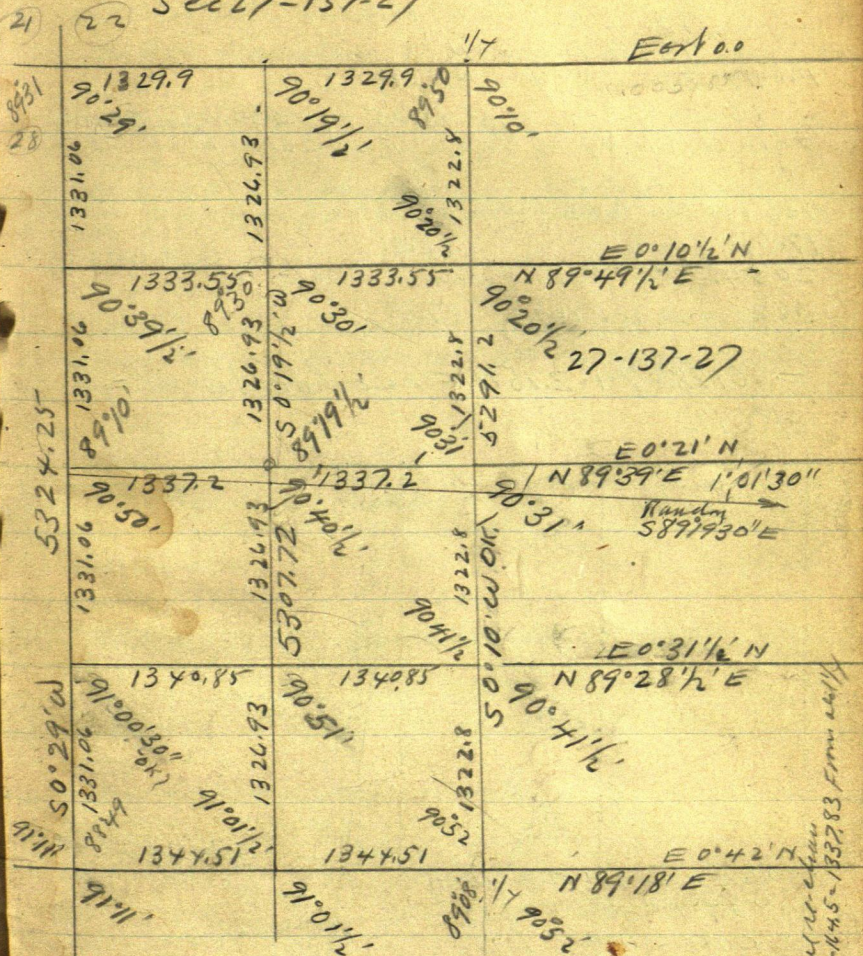 21 22 Sec 27-137-27
1/4 East 0.0
8931 1329.9 1329.9 89°50
90°29' 90°19 1/2' 90°10'
28
1331.06 1326.93 1322.8
90°20 1/2
E 0°10 1/2' N
1333.55 1333.55 N 89°49 1/2' E
90°39 1/2' 8930' 90°30' 90°20 1/2
1331.06 1326.93 S 0°19 1/2' W 1322.8 5291.2 27-137-27
89°10' 89°19 1/2' 9031
E 0°21' N
5324.25
1337.2 1337.2 N 89°39' E 1°,01'30"
90°50' 90°40 1/2' 90°31'
Random
S 89°19'30" E
1331.06 1326.93 5307.72 1322.8 S 0°10' W OK.
9041 1/2
E 0°31 1/2' N
1340.85 1340.85 N 89°28 1/2' E
S 0°29' W
91°00'30" 90°51' 90°41 1/2'
OK?
1331.06 1326.93 1322.8
8849 91°01 1/2' 9052
91°11'
1344.51 1344.51 E 0°42' N
N 89°18' E
91°11' 91°01 1/2' 8908' 1/4 90°52'
164.5 = 1337.83 From